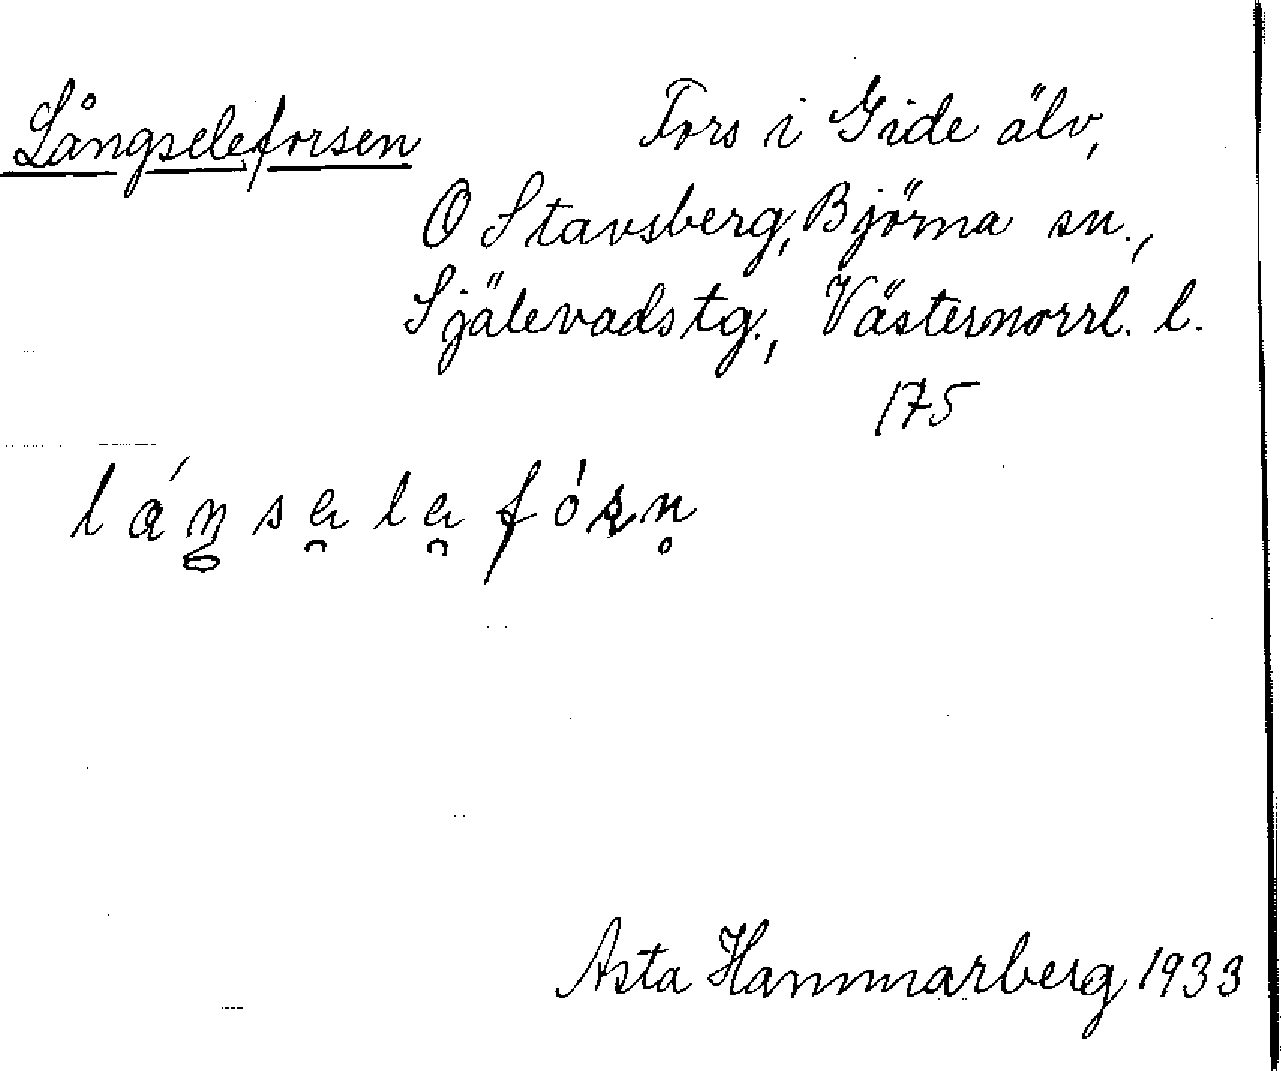 Långseleforsen
Fors i Gide älv,
O Stavsberg, Björna sn.,
Själevadstg., Västernorrl. l.
175
Asta Hammarberg 1933